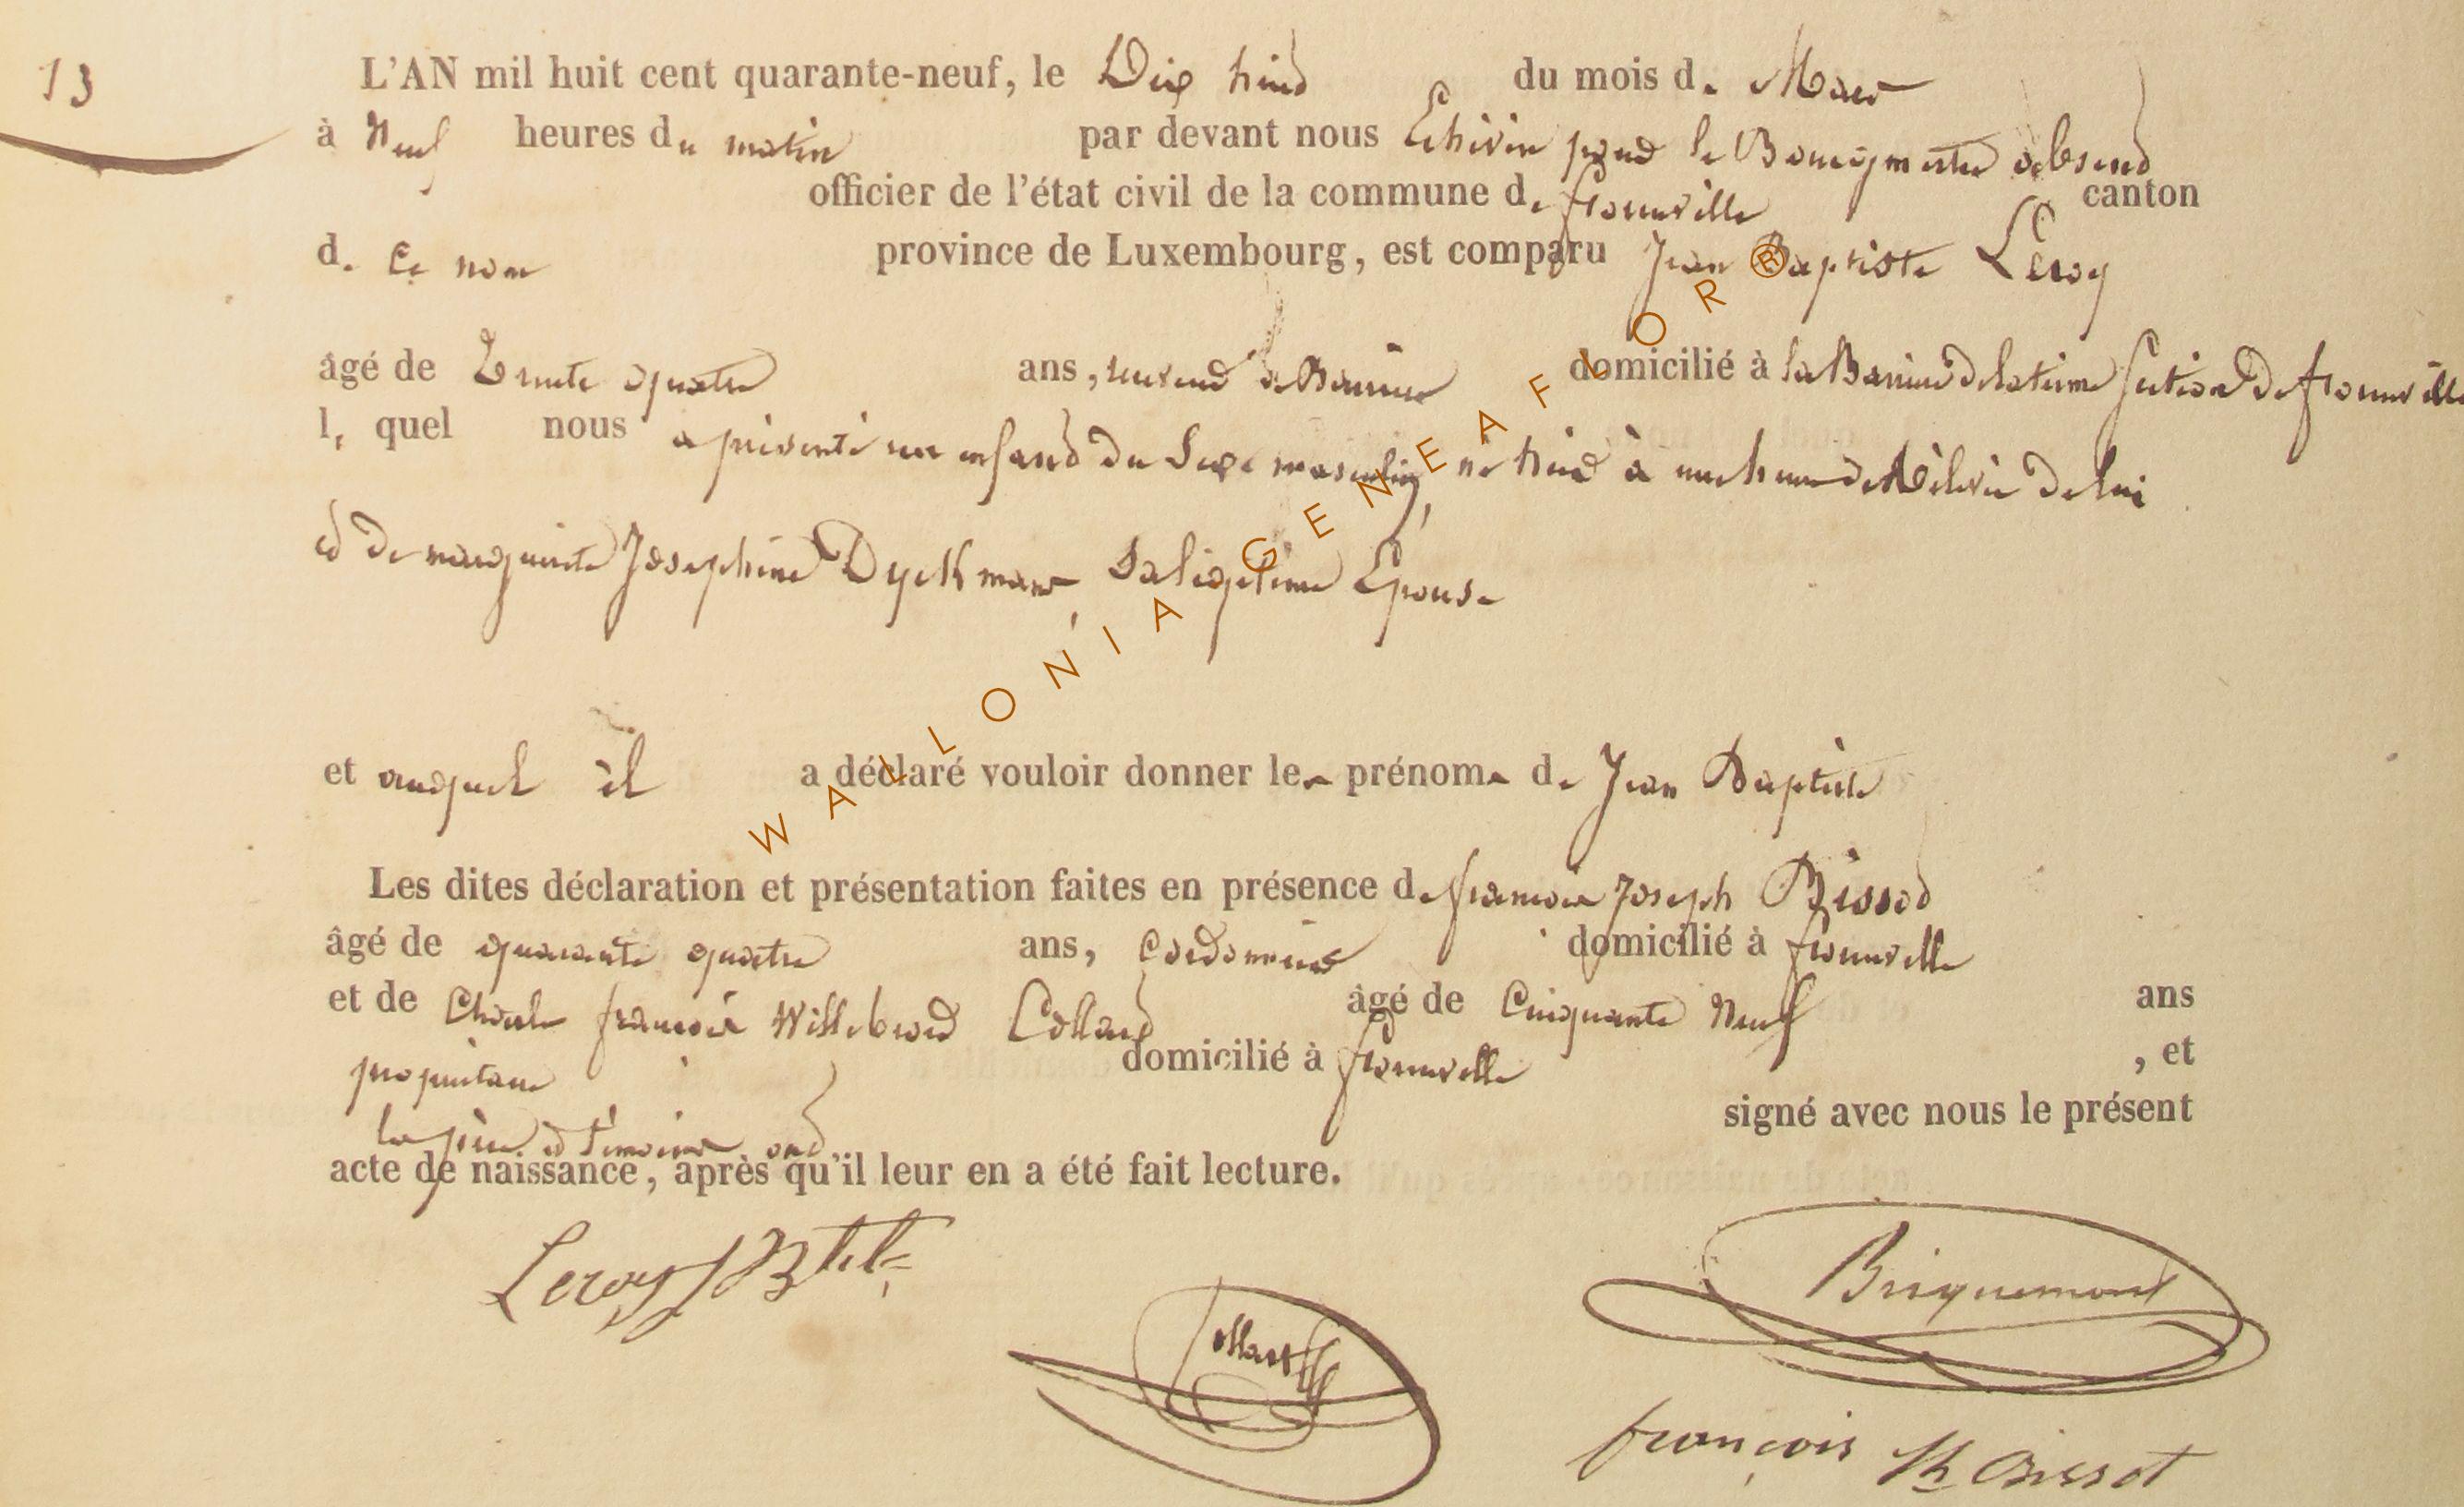 13
L'AN mil huit cent quarante-neuf, le Dix huit du mois de Mars
à Neuf heures du matin par devant nous Echevin pour le Bourgmestre absent
officier de l'état civil de la commune de canton
de Ce nom province de Luxembourg, est comparu Jean Baptiste Leroy
âgé de Trente quatre ans, domicilié à la Barriere section de
lequel nous a présenté un enfant du Sexe masculin, né à une heure de Relevée de lui
et de marguerite Josephine Dyckmans, Sa légitime Epouse
et auquel il a déclaré vouloir donner les prénoms de Jean Baptiste
Les dites déclaration et présentation faites en présence de françois Joseph Bissot
âgé de quarante quatre ans, Cordonnier domicilié à
et de Charles françois Willebrord Collard âgé de Cinquante Neuf ans
propriétaire domicilié à , et
le père et témoins ont signé avec nous le présent
acte de naissance, après qu'il leur en a été fait lecture.
Leroy JBte
Briquemont
Collard
françois Jh Bissot
WALLONIA GENEAFLOR ®